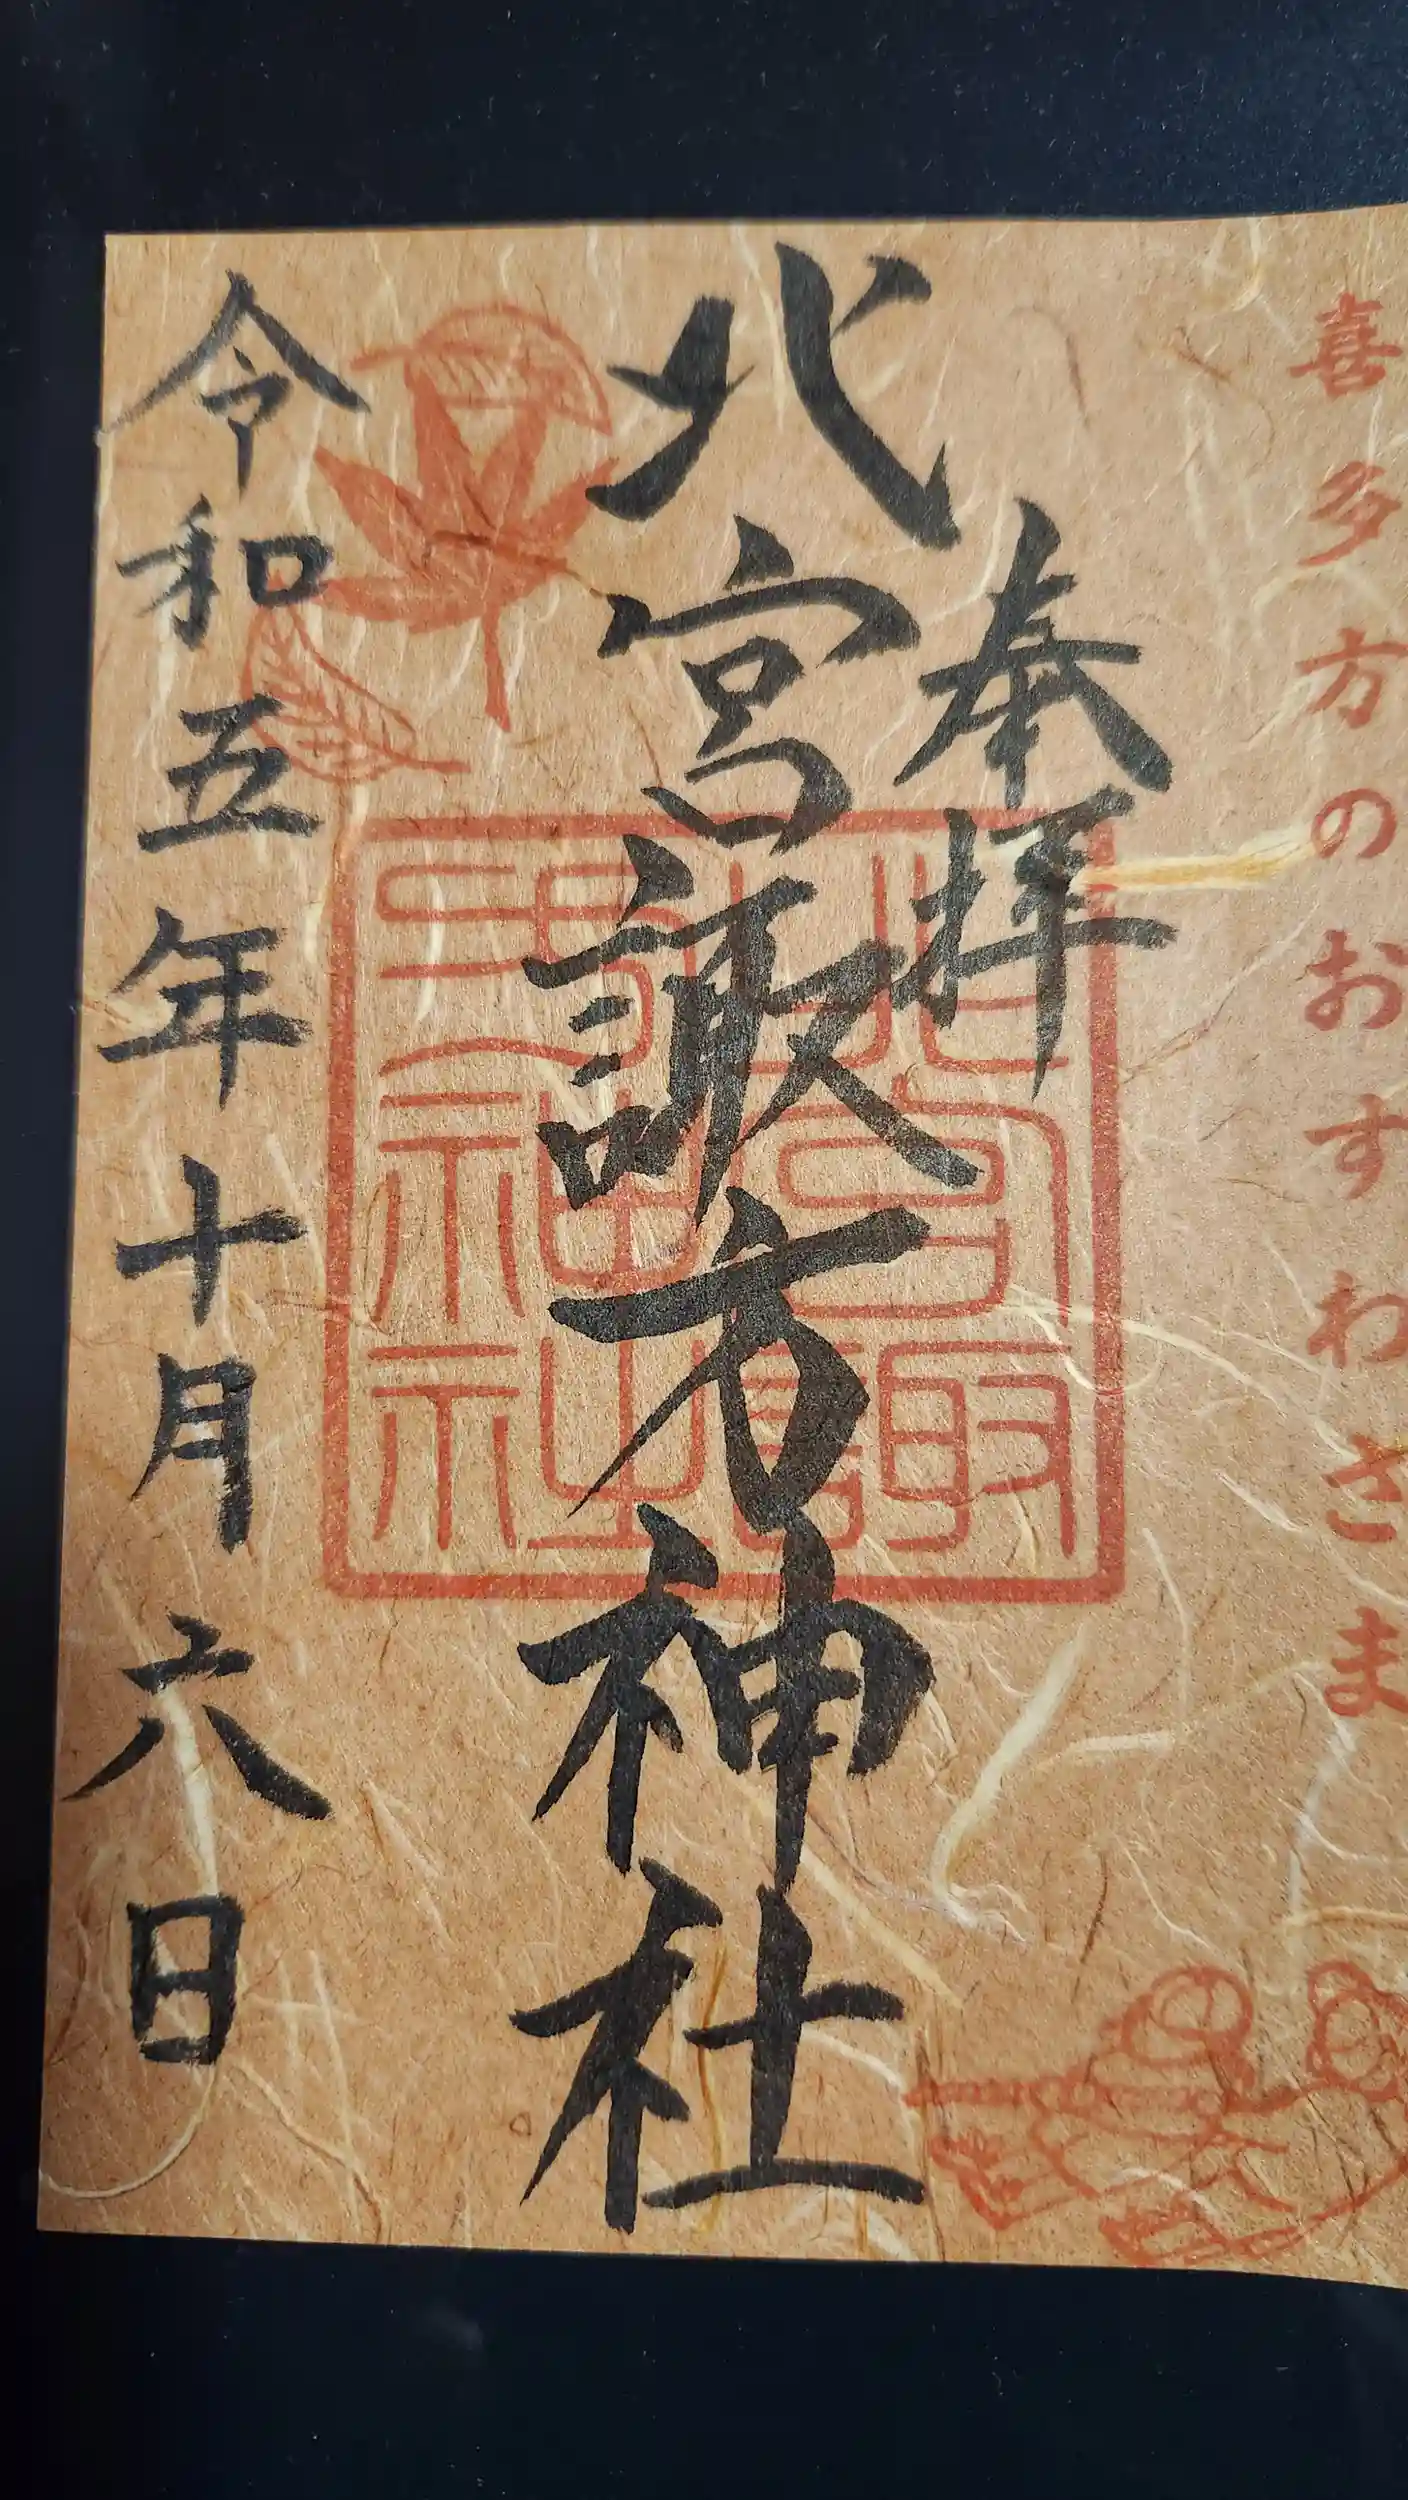 喜多方のおすわさま
奉拝
北宮諏方神社
北宮諏方神社
令和五年十月六日